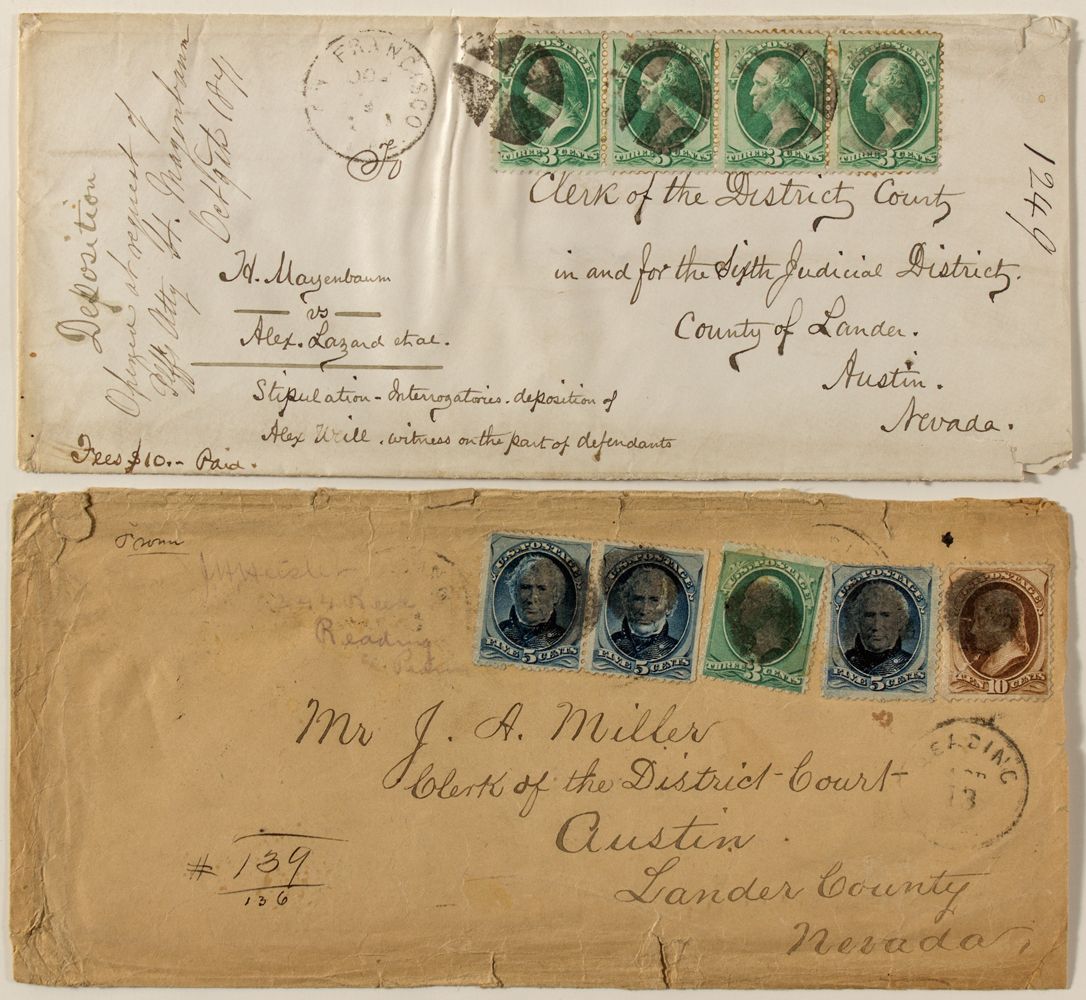 SAN FRANCISCO
U.S. POSTAGE
THREE 3 CENTS
U.S. POSTAGE
THREE 3 CENTS
U.S. POSTAGE
THREE 3 CENTS
U.S. POSTAGE
THREE 3 CENTS
Deposition
Opened at request of
Plffs Atty H. Mayenbaum
Oct 9th 1874
1249
Clerk of the District Court
in and for the Sixth Judicial District.
County of Lander.
Austin.
Nevada.
H. Mayenbaum
vs
Alex. Lazard et al.
Stipulation - Interrogatories. deposition of
Alex Weill. witness on the part of defendants
Fees $10.- Paid.
From
Reading
U.S. POSTAGE
FIVE 5 CENTS
U.S. POSTAGE
FIVE 5 CENTS
U.S. POSTAGE
THREE 3 CENTS
U.S. POSTAGE
FIVE 5 CENTS
U.S. POSTAGE
TEN 10 CENTS
READING
13
Mr J. A. Miller
Clerk of the District Court
Austin
Lander County
Nevada
# 139
136